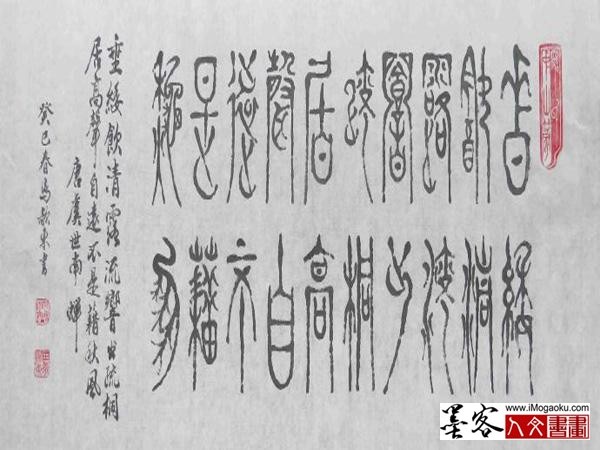 垂緌
飲清
露流
響出
疏桐
居高
聲自
遠不
是藉
秋風
垂緌飲清露流響出疏桐
居高聲自遠不是藉秋風
唐虞世南 蟬
癸巳春馬東書
墨客
www.iMogaoku.com
人文書畫